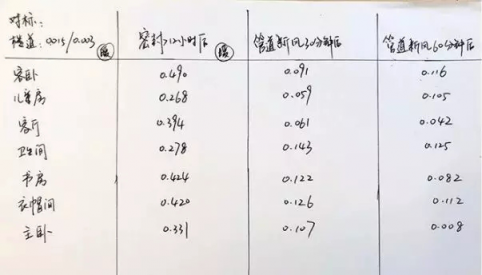 对标:
楼道: 0.015/0.003 密封>12小时后 管道新风30分钟后 管道新风60分钟后
客卧 0.490 0.091 0.116
儿童房 0.268 0.059 0.105
客厅 0.394 0.061 0.042
卫生间 0.278 0.143 0.125
书房 0.424 0.122 0.082
衣帽间 0.420 0.126 0.112
主卧 0.331 0.107 0.008